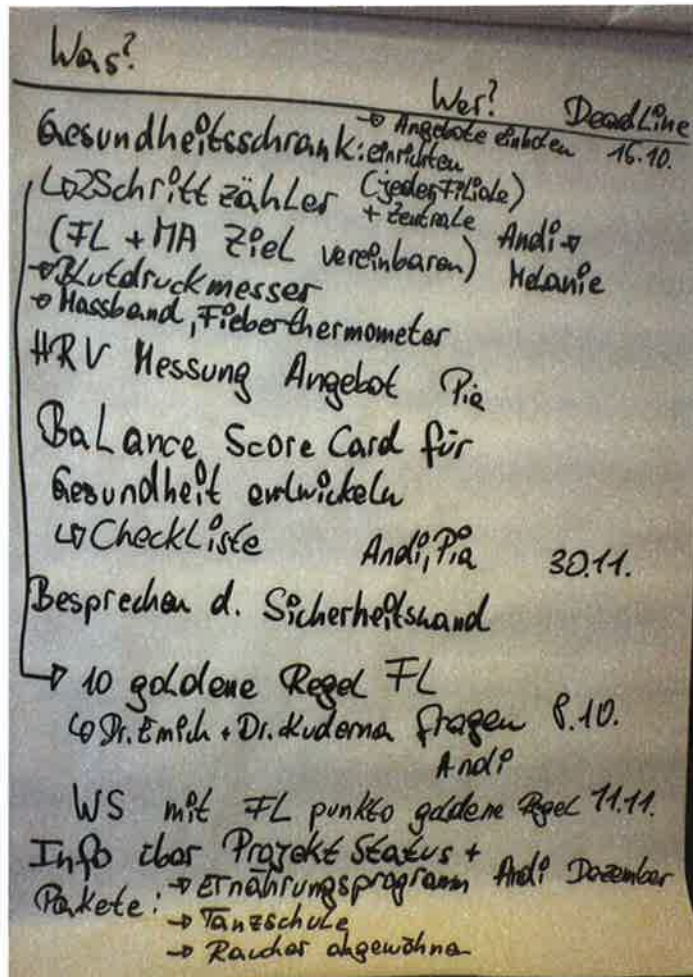 Was?
Wer? DeadLine
Gesundheitsschrank: einrichten → Angebote einholen 16.10.
↳ 2 Schrittzähler (jeder Filiale) + Zentrale
(FL + MA Ziel vereinbaren) Andi → Melanie
→ Blutdruckmesser
→ Massband, Fieberthermometer
HRV Messung Angebot Pia
Balance Score Card für
Gesundheit entwickeln
↳ CheckListe Andi, Pia 30.11.
Besprechen d. Sicherheitshand
→ 10 goldene Regel FL
↳ Dr. Emich + Dr. Kuderna fragen 8.10.
Andi
WS mit FL punkto goldene Regel 11.11.
Info über Projekt Status +
Pakete: → Ernährungsprogramm Andi Dezember
→ Tanzschule
→ Raucher abgewöhnen